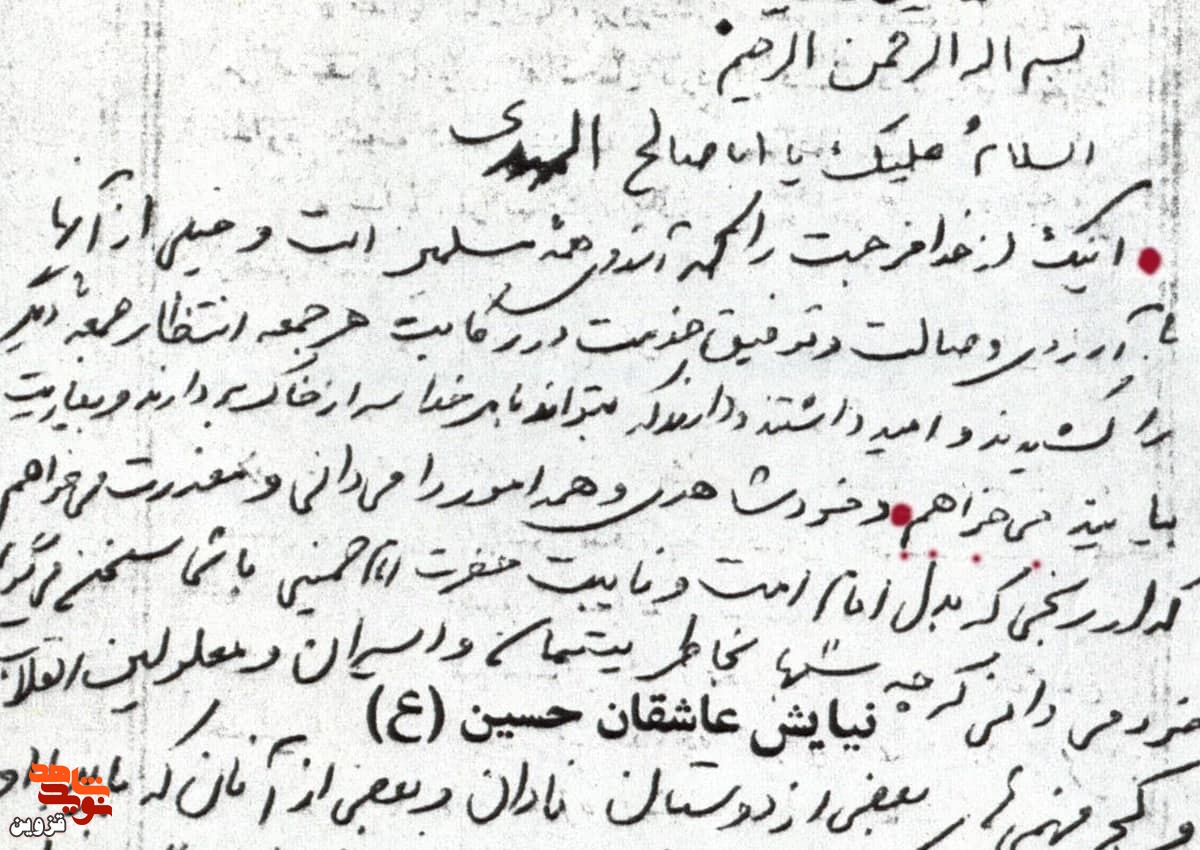 بسم اله الرحمن الرحیم
السلام علیک یا ابا صالح المهدی
اینک از خدا فرجت را که آرزوی همه مسلمین است و خیلی از آنها
با آرزوی وصالت و توفیق خدمت در رکابت هر جمعه انتظار جمعه دیگر
را کشیدند و امید داشتند و دارند که بتوانند با امر خدا سر از خاک بردارند و بیاریت
بیایند می‌خواهم و خود شاهدی و همه امور را می‌دانی و معذرت می‌خواهم
که از رنجی که بدل امام امت و نایبت حضرت امام خمینی با شما سخن می‌گوید
خود می دانی که چه شبها بخاطر یتیمان و اسیران و معلولین انقلاب
نیایش عاشقان حسین (ع)
و کج فهمی بعضی از دوستان نادان و بعضی از آنان که با
نوید شاهد
قزوین